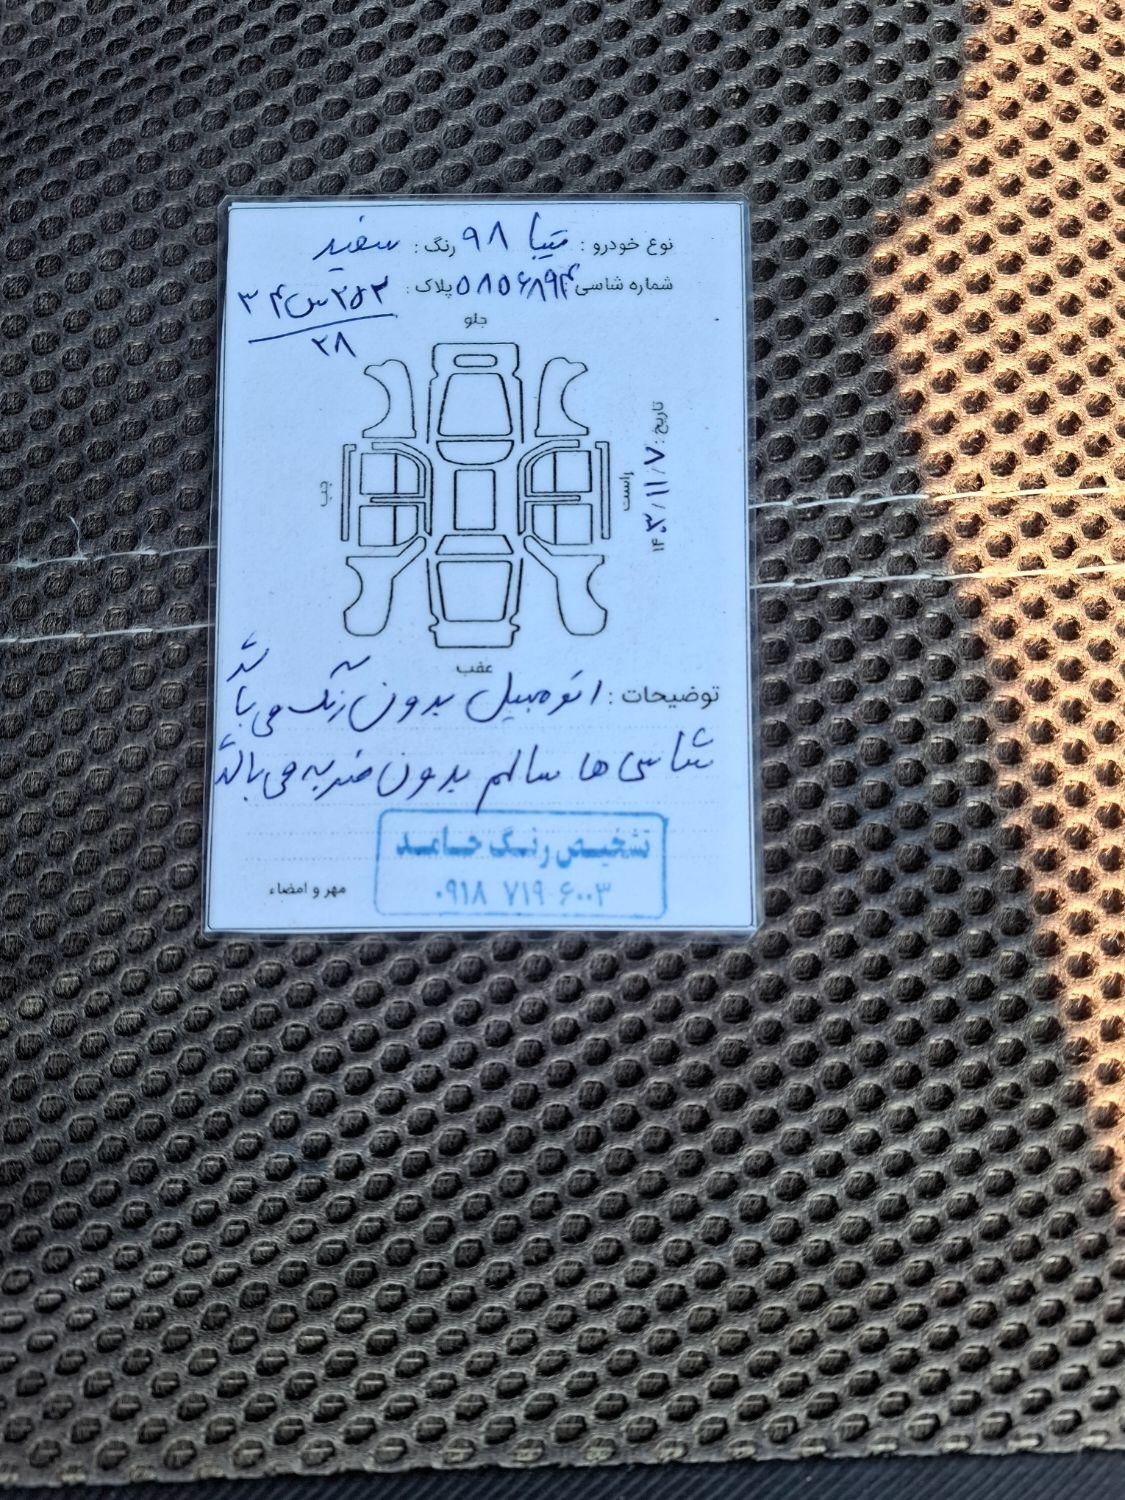 نوع خودرو : تیبا ۹۸ رنگ : سفید
شماره شاسی ۵۸۵۶۸۹۴ پلاک :
۲۸
جلو
چپ
راست
تاریخ : ۱۴۰۳/۱۱/۷
عقب
توضیحات : اتومبیل بدون رنگ می باشد
شاسی ها سالم بدون ضربه می باشد
تشخیص رنگ حامد
۰۹۱۸ ۷۱۹ ۶۰۰۳
مهر و امضاء